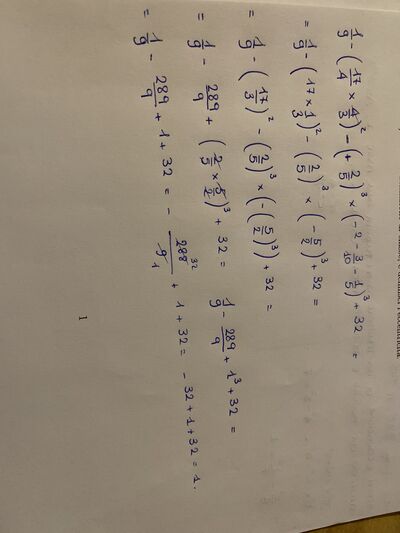 1/9 - (17/4 × 4/3)² - (+ 2/5)³ × (-2 - 3/10 - 1/5)³ + 32 =
= 1/9 - (17 × 1/3)² - (2/5)³ × (- 5/2)³ + 32 =
= 1/9 - (17/3)² - (2/5)³ × (-(5/2)³) + 32 =
= 1/9 - 289/9 + (2/5 × 5/2)³ + 32 = 1/9 - 289/9 + 1³ + 32 =
= 1/9 - 289/9 + 1 + 32 = - 288 32/9 1 + 1 + 32 = - 32 + 1 + 32 = 1.
1